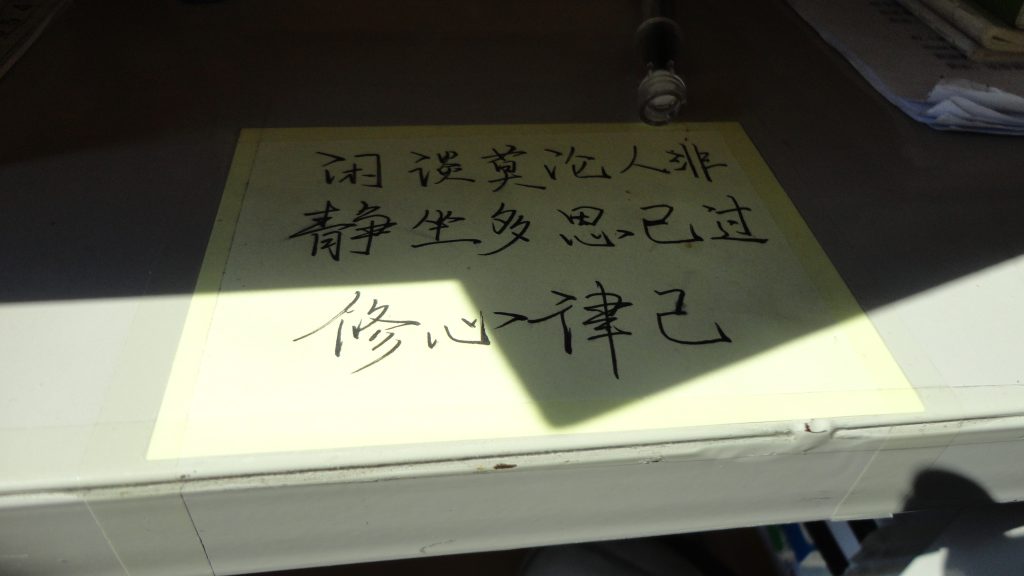 闲谈莫论人非
静坐多思己过
修心律己